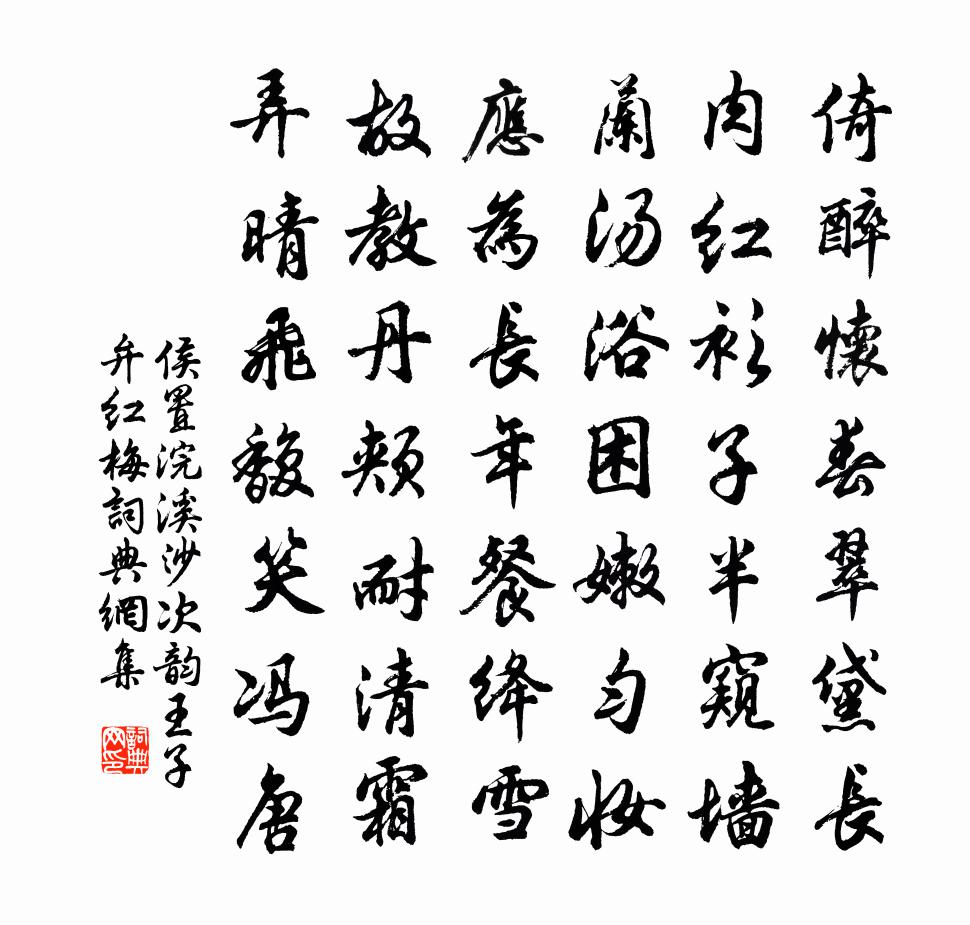 倚醉懷春翠黛長
肉红衫子半窺墙
蘭汤浴困嫩匀妆
應為長年餐絳雪
故教丹頰耐清霜
弄晴飛馥笑冯唐
侯置浣溪沙次韵王子
弁红梅詞典網集
詞典网印